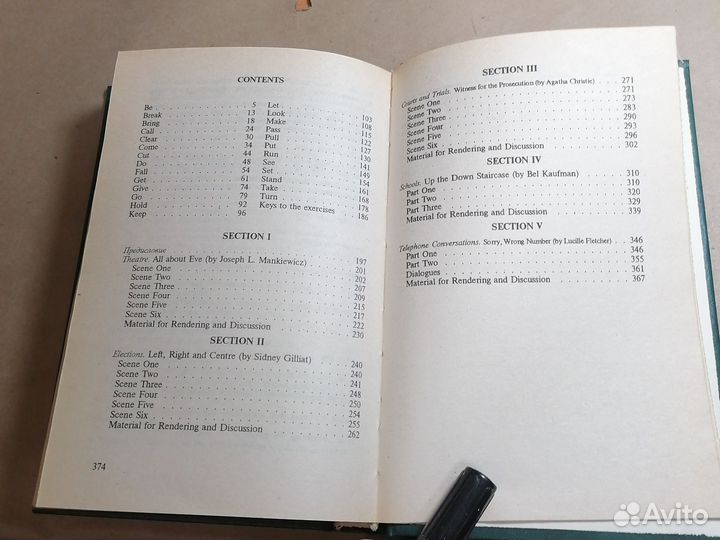 CONTENTS
Be . . . . . . . 5 Let . . . . . . . 103
Break . . . . . . . 13 Look . . . . . . . 108
Bring . . . . . . . 18 Make . . . . . . . 115
Call . . . . . . . 24 Pass . . . . . . . 122
Clear . . . . . . . 30 Pull . . . . . . . 127
Come . . . . . . . 34 Put . . . . . . . 130
Cut . . . . . . . 44 Run . . . . . . . 141
Do . . . . . . . 48 See . . . . . . . 149
Fall . . . . . . . 54 Set . . . . . . . 154
Get . . . . . . . 61 Stand . . . . . . . 161
Give . . . . . . . 70 Take . . . . . . . 168
Go . . . . . . . 79 Turn . . . . . . . 178
Hold . . . . . . . 92 Keys to the exercises . 186
Keep . . . . . . . 96
SECTION I
Предисловие . . . . . . . 197
Theatre. All about Eve (by Joseph L. Mankiewicz) . . . 201
Scene One . . . . . . . 202
Scene Two . . . . . . . 207
Scene Three . . . . . . . 209
Scene Four . . . . . . . 215
Scene Five . . . . . . . 217
Scene Six . . . . . . . 222
Material for Rendering and Discussion . . . . . . . 230
SECTION II
Elections. Left, Right and Centre (by Sidney Gilliat) . . . 240
Scene One . . . . . . . 240
Scene Two . . . . . . . 241
Scene Three . . . . . . . 248
Scene Four . . . . . . . 250
Scene Five . . . . . . . 254
Scene Six . . . . . . . 255
Material for Rendering and Discussion . . . . . . . 262
374
SECTION III
Courts and Trials. Witness for the Prosecution (by Agatha Christie) . 271
Scene One . . . . . . . 271
Scene Two . . . . . . . 273
Scene Three . . . . . . . 283
Scene Four . . . . . . . 290
Scene Five . . . . . . . 293
Scene Six . . . . . . . 296
Material for Rendering and Discussion . . . . . . . 302
SECTION IV
Schools. Up the Down Staircase (by Bel Kaufman) . . . . 310
Part One . . . . . . . 310
Part Two . . . . . . . 320
Part Three . . . . . . . 329
Material for Rendering and Discussion . . . . . . . 339
SECTION V
Telephone Conversations. Sorry, Wrong Number (by Lucille Fletcher) . 346
Part One . . . . . . . 346
Part Two . . . . . . . 355
Dialogues . . . . . . . 361
Material for Rendering and Discussion . . . . . . . 367
Avito